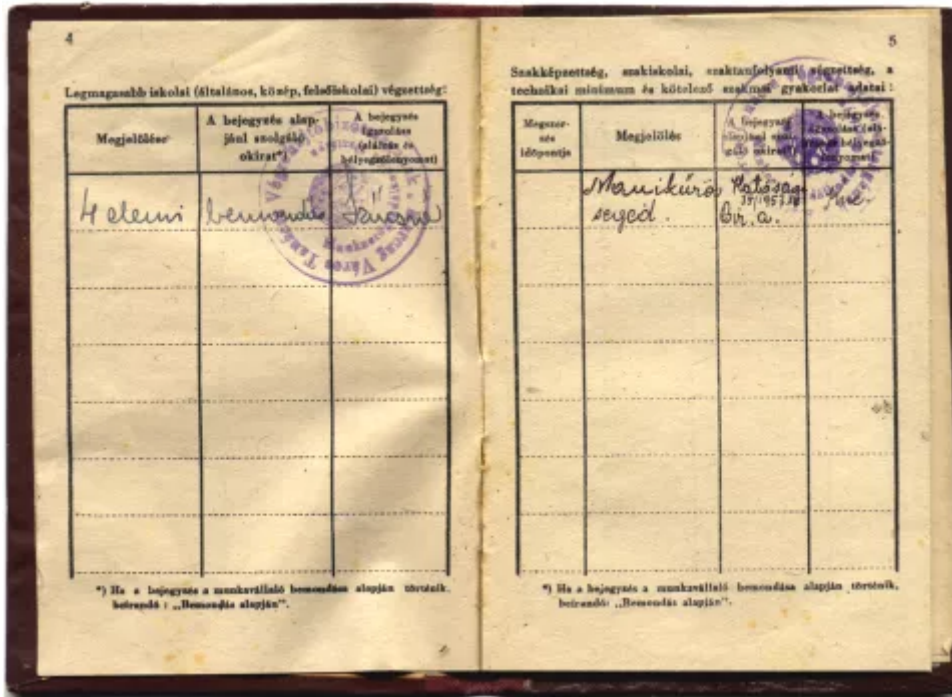 4
Legmagasabb iskolai (általános, közép, felsőiskolai) végzettség:
Megjelölése
A bejegyzés alap-
jául szolgáló
okirat*)
A bejegyzés
igazolása
(aláírás és
bélyegzőlenyomat)
4 elemi
bemondás
Végrehajtóbizottság
Karcag Város Tanács
*) Ha a bejegyzés a munkavállaló bemondása alapján történik,
beírandó: „Bemondás alapján".
5
Szakképzettség, szakiskolai, szaktanfolyami végzettség, a
technikai minimum és kötelező szakmai gyakorlat adatai:
Megszer-
zés
időpontja
Megjelölés
A bejegyzés
alapjául szol-
gáló okirat*)
A bejegyzés
igazolása (alá-
írás és bélyegző-
lenyomat)
Manikűrö
segéd.
Hatósági
35/1957.
Biz. a.
*) Ha a bejegyzés a munkavállaló bemondása alapján történik,
beírandó: „Bemondás alapján".